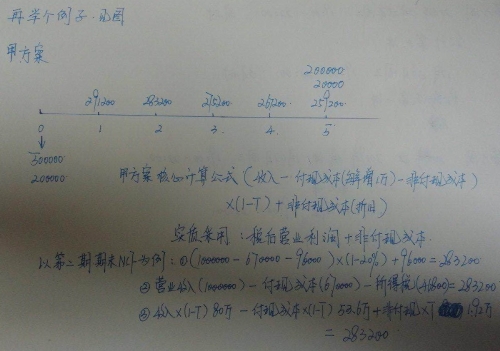 再举个例子.见图
甲方案
200000
20000
291200 283200 275200 267200 259200
0 1 2 3. 4. 5
500000
200000
甲方案核心计算公式(收入-付现成本(每年增1万)-非付现成本)
×(1-T)+非付现成本(折旧)
实质采用:税后营业利润+非付现成本.
以第二期期末NCF为例:①(1000000-670000-96000)×(1-20%)+96000=283200
②营业收入(1000000)-付现成本(670000)-所得税(46800)=283200
③收入×(1-T)80万-付现成本×(1-T)53.6万+非付现×T 1.92万
=283200